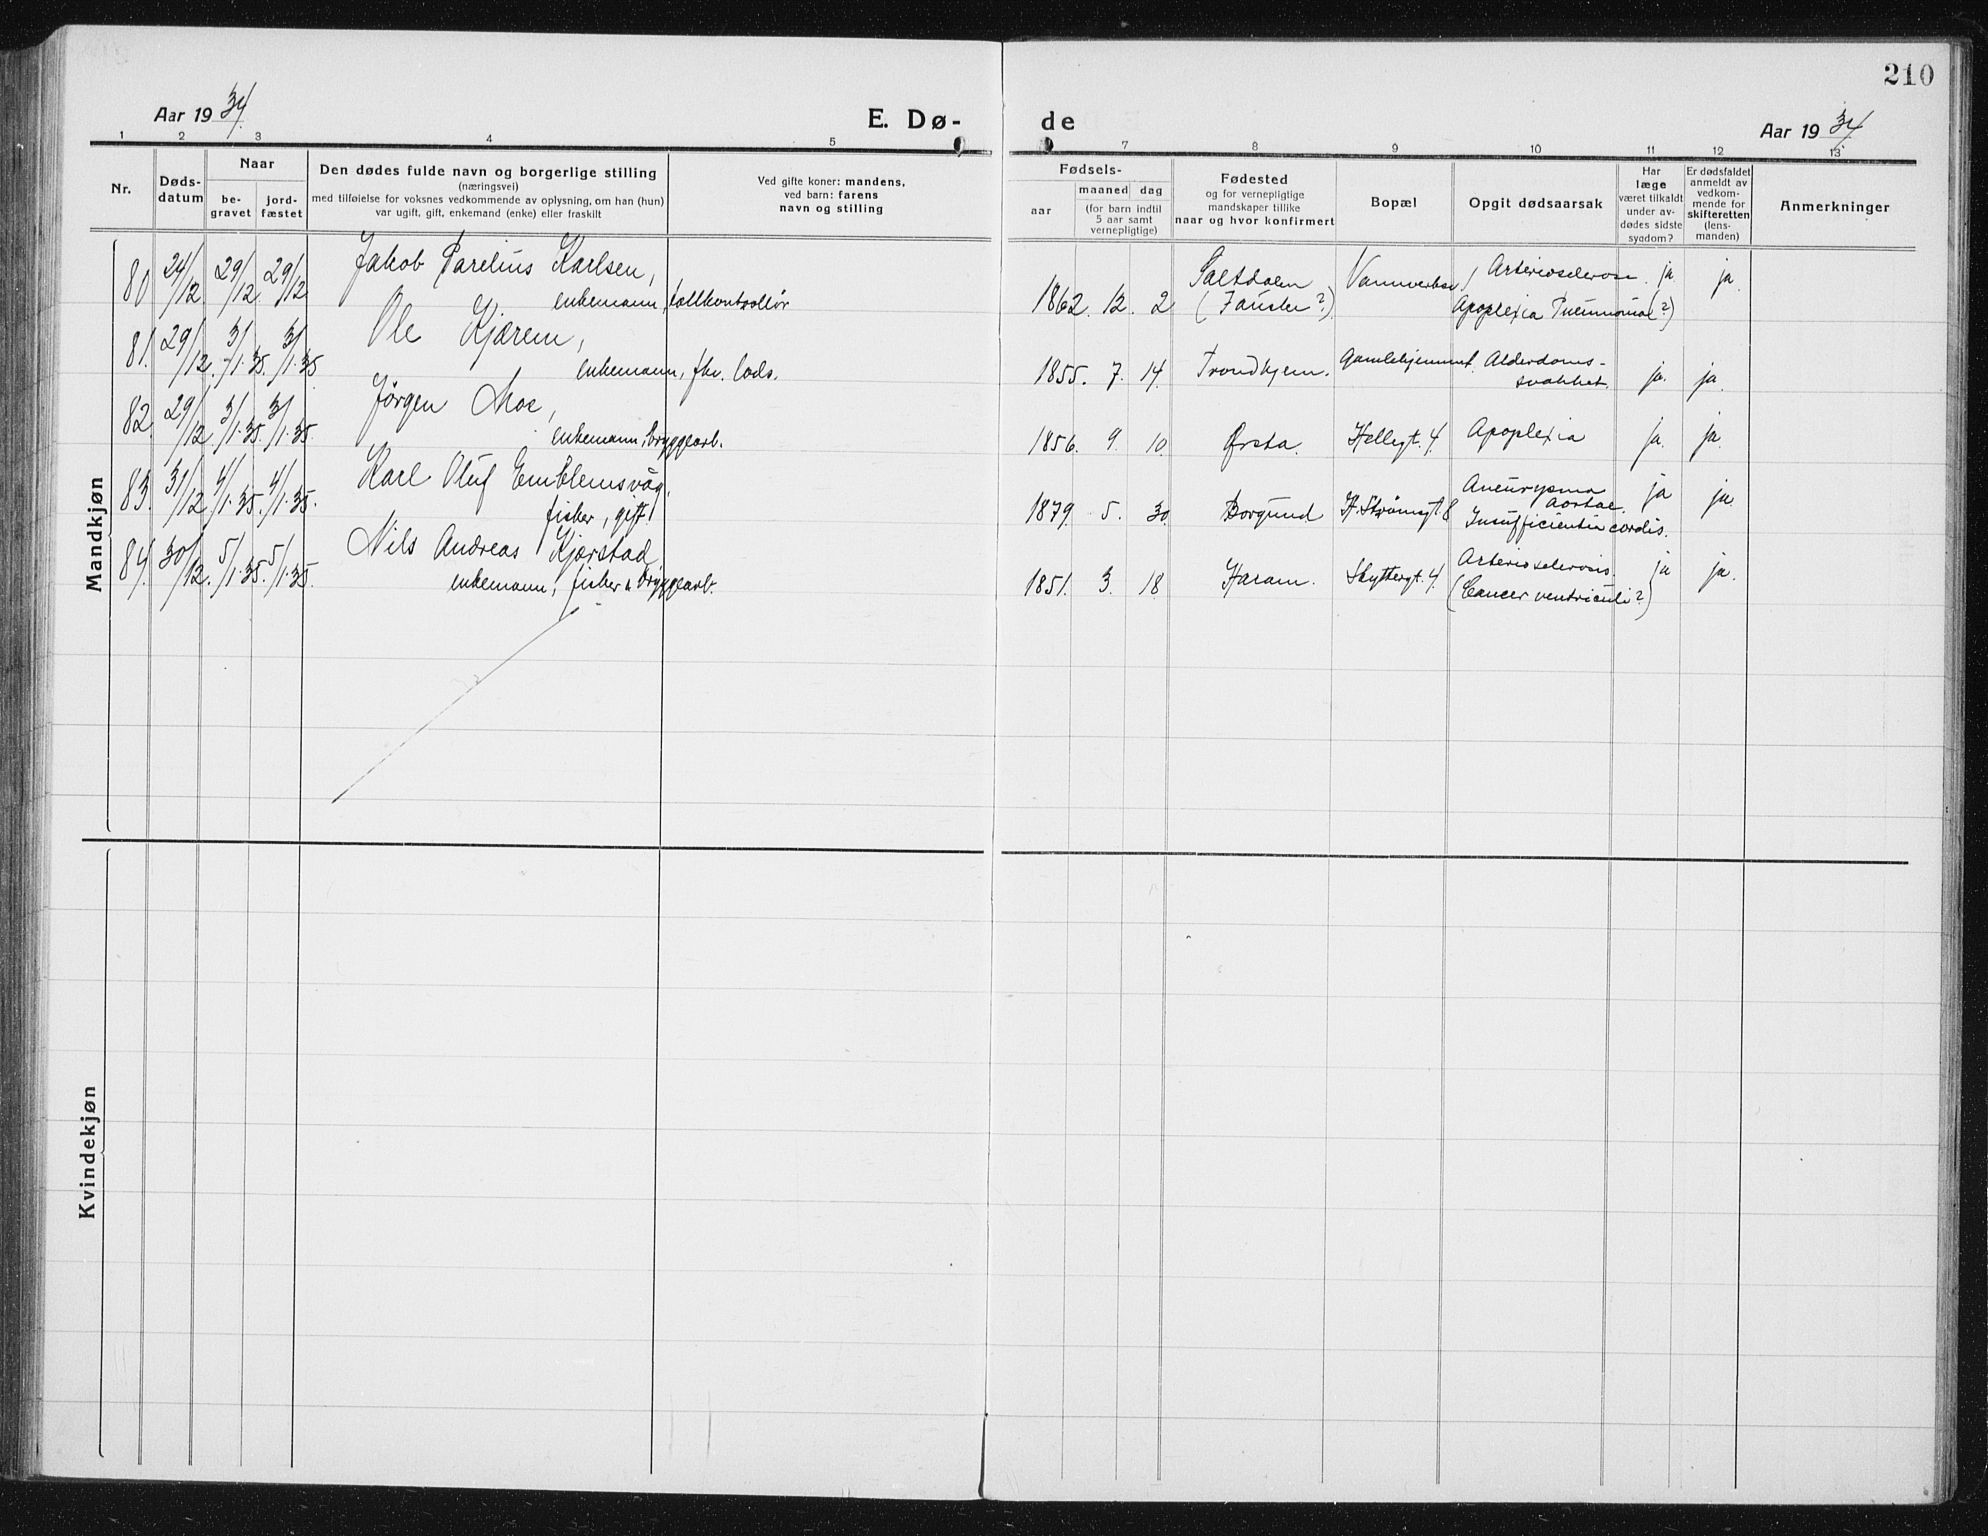 210
Aar 1934.
E. Dø-
de
Aar 1934.
1 2 3 4 5 7 8 9 10 11 12 13
Nr.
Døds-
datum
Naar
be-
gravet
jord-
fæstet
Den dødes fulde navn og borgerlige stilling
(næringsvei)
med tilføielse for voksnes vedkommende av oplysning, om han (hun)
var ugift, gift, enkemand (enke) eller fraskilt
Ved gifte koner: mandens,
ved barn: farens
navn og stilling
Fødsels-
aar
maaned dag
(for barn indtil
5 aar samt
vernepligtige)
Fødested
og for vernepligtige
mandskaper tillike
naar og hvor konfirmert
Bopæl
Opgit dødsaarsak
Har
læge
været tilkaldt
under av-
dødes sidste
sygdom?
Er dødsfaldet
anmeldt av
vedkom-
mende for
skifteretten
(lens-
manden)
Anmerkninger
Mandkjøn
80 24/12 29/12 29/12 Jakob Parelius Karlsen,
enkemann, tollkontrollør
1862. 12. 2 Saltdalen
(Fauske?)
Arteriosclerose
Apoplexia Pneumonia(?)
ja. ja.
81. 29/12 3/1.35. 3/1.35 Ole Kjærem,
enkemann, fhv. lods.
1855. 7. 14. Trondhjem. Gamlehjemmet. Alderdoms-
svakhet. ja. ja.
82. 29/12 3/1.35. 3/1.35. Jørgen Moe,
enkemann, bryggearb.
1856. 9. 10. Ørsta. Hellegt. 4. Apoplexia ja. ja.
83. 31/12 4/1.35. 4/1.35. Karl Oluf Emblemsvåg,
fisker, gift
1879. 5. 30 Borgund Aneurysma
Aortae.
Insufficientia cordis.
ja ja.
84. 30/12. 5/1.35. 5/1.35. Nils Andreas Kjærstad
enkemann, fisker & bryggearb.
1851. 3. 18 Haram. Skyttergt. 4. Arteriosclerosis.
(Cancer ventriculi?)
ja ja.
Kvindekjøn